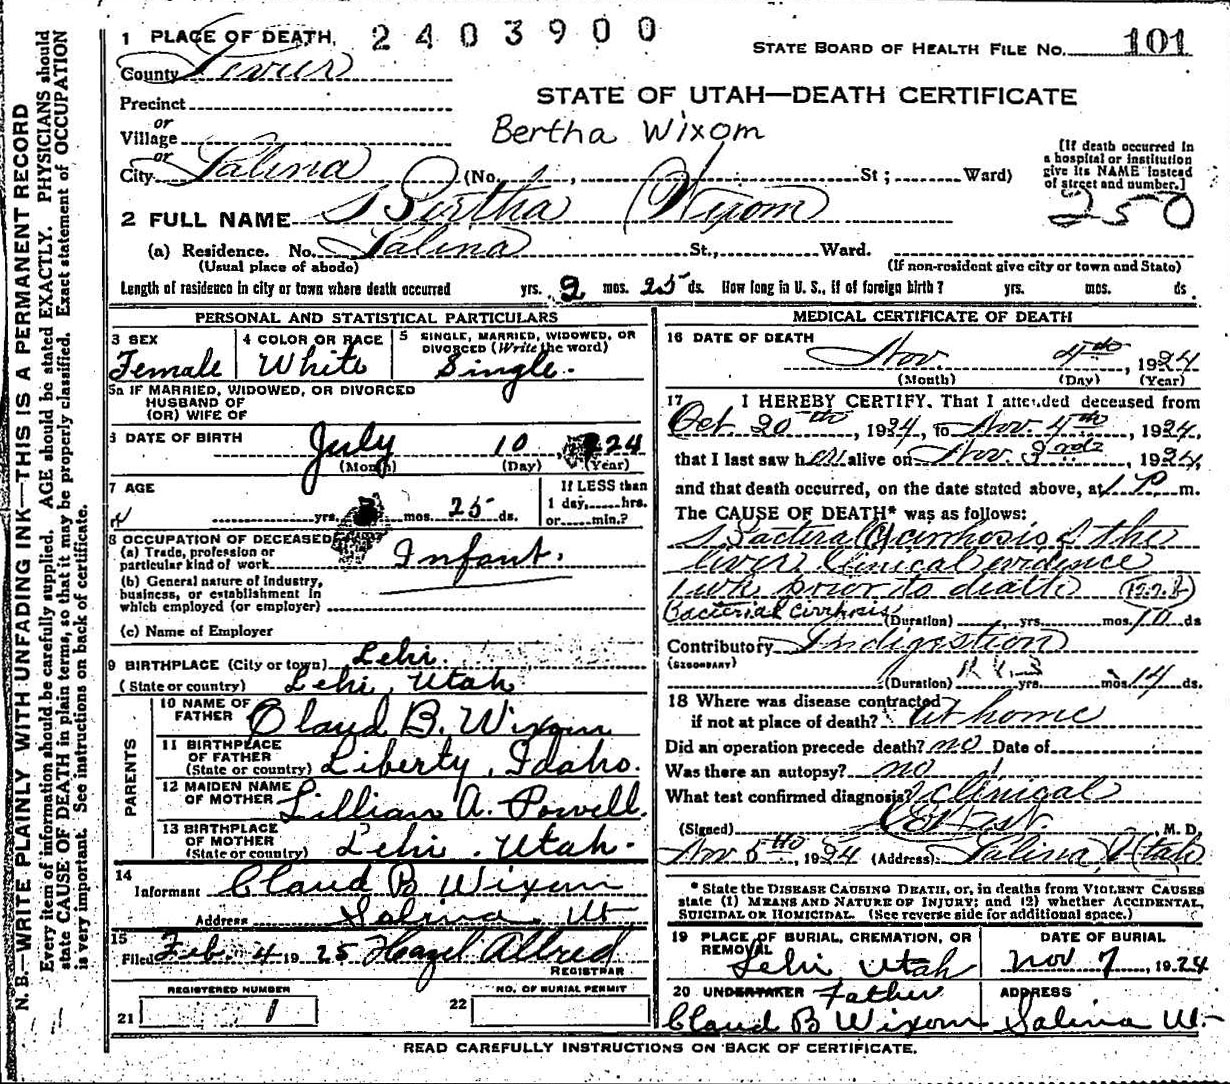 1 PLACE OF DEATH, 2403900
STATE BOARD OF HEALTH FILE NO. 101
County Sevier
STATE OF UTAH—DEATH CERTIFICATE
Precinct
or
Village
Bertha Wixom
or
City Salina (No. , St; Ward)
[If death occurred in
a hospital or institution
give its NAME instead
of street and number.]
250
2 FULL NAME Bertha Wixom
(a) Residence. No. Salina St., Ward.
(Usual place of abode) (If non-resident give city or town and State)
Length of residence in city or town where death occurred yrs. 2 mos. 25 ds. How long in U. S., if of foreign birth? yrs. mos. ds.
PERSONAL AND STATISTICAL PARTICULARS
3 SEX
Female
4 COLOR OR RACE
White
5 SINGLE, MARRIED, WIDOWED, OR
DIVORCED (Write the word)
Single.
5a IF MARRIED, WIDOWED, OR DIVORCED
HUSBAND OF
(OR) WIFE OF
6 DATE OF BIRTH July 10 24
(Month) (Day) (Year)
7 AGE
yrs. mos. 25 ds.
If LESS than
1 day, hrs.
or min.?
8 OCCUPATION OF DECEASED
(a) Trade, profession or
particular kind of work Infant.
(b) General nature of Industry,
business, or establishment in
which employed (or employer)
(c) Name of Employer
9 BIRTHPLACE (City or town) Lehi.
(State or country) Lehi, Utah
PARENTS
10 NAME OF
FATHER Claud B. Wixom
11 BIRTHPLACE
OF FATHER
(State or country) Liberty, Idaho.
12 MAIDEN NAME
OF MOTHER Lillian A. Powell.
13 BIRTHPLACE
OF MOTHER
(State or country) Lehi, Utah.
14
Informant Claud B Wixom
Address Salina, Ut
15
Filed Feb. 4 1925 Hazel Allred
REGISTRAR
REGISTERED NUMBER
21 1
NO. OF BURIAL PERMIT
22
MEDICAL CERTIFICATE OF DEATH
16 DATE OF DEATH
Nov. 4th, 1924
(Month) (Day) (Year)
17 I HEREBY CERTIFY, That I attended deceased from
Oct 20th, 1924, to Nov. 4th, 1924,
that I last saw her alive on Nov. 3rd, 1924,
and that death occurred, on the date stated above, at 1 P. m.
The CAUSE OF DEATH* was as follows:
cirrhosis of the
liver Clinical evidence
1 wk prior to death
Bacterial Cirrhosis (Duration) yrs. mos. 10 ds
Contributory Indigestion
(SECONDARY)
(Duration) yrs. mos. 14 ds.
18 Where was disease contracted
if not at place of death? at home
Did an operation precede death? no Date of
Was there an autopsy? no
What test confirmed diagnosis? Clinical
(Signed) West, M. D.
Nov 5th, 1924 (Address) Salina Utah
* State the DISEASE CAUSING DEATH, or, in deaths from VIOLENT CAUSES
state (1) MEANS AND NATURE OF INJURY; and (2) whether ACCIDENTAL,
SUICIDAL OR HOMICIDAL. (See reverse side for additional space.)
19 PLACE OF BURIAL, CREMATION, OR
REMOVAL
Lehi Utah
DATE OF BURIAL
Nov 7, 1924
20 UNDERTAKER Father
Claud B Wixom
ADDRESS
Salina Ut
READ CAREFULLY INSTRUCTIONS ON BACK OF CERTIFICATE.
N. B.—WRITE PLAINLY WITH UNFADING INK—THIS IS A PERMANENT RECORD
Every item of information should be carefully supplied. AGE should be stated EXACTLY. PHYSICIANS should
state CAUSE OF DEATH in plain terms, so that it may be properly classified. Exact statement of OCCUPATION
is very important. See instructions on back of certificate.